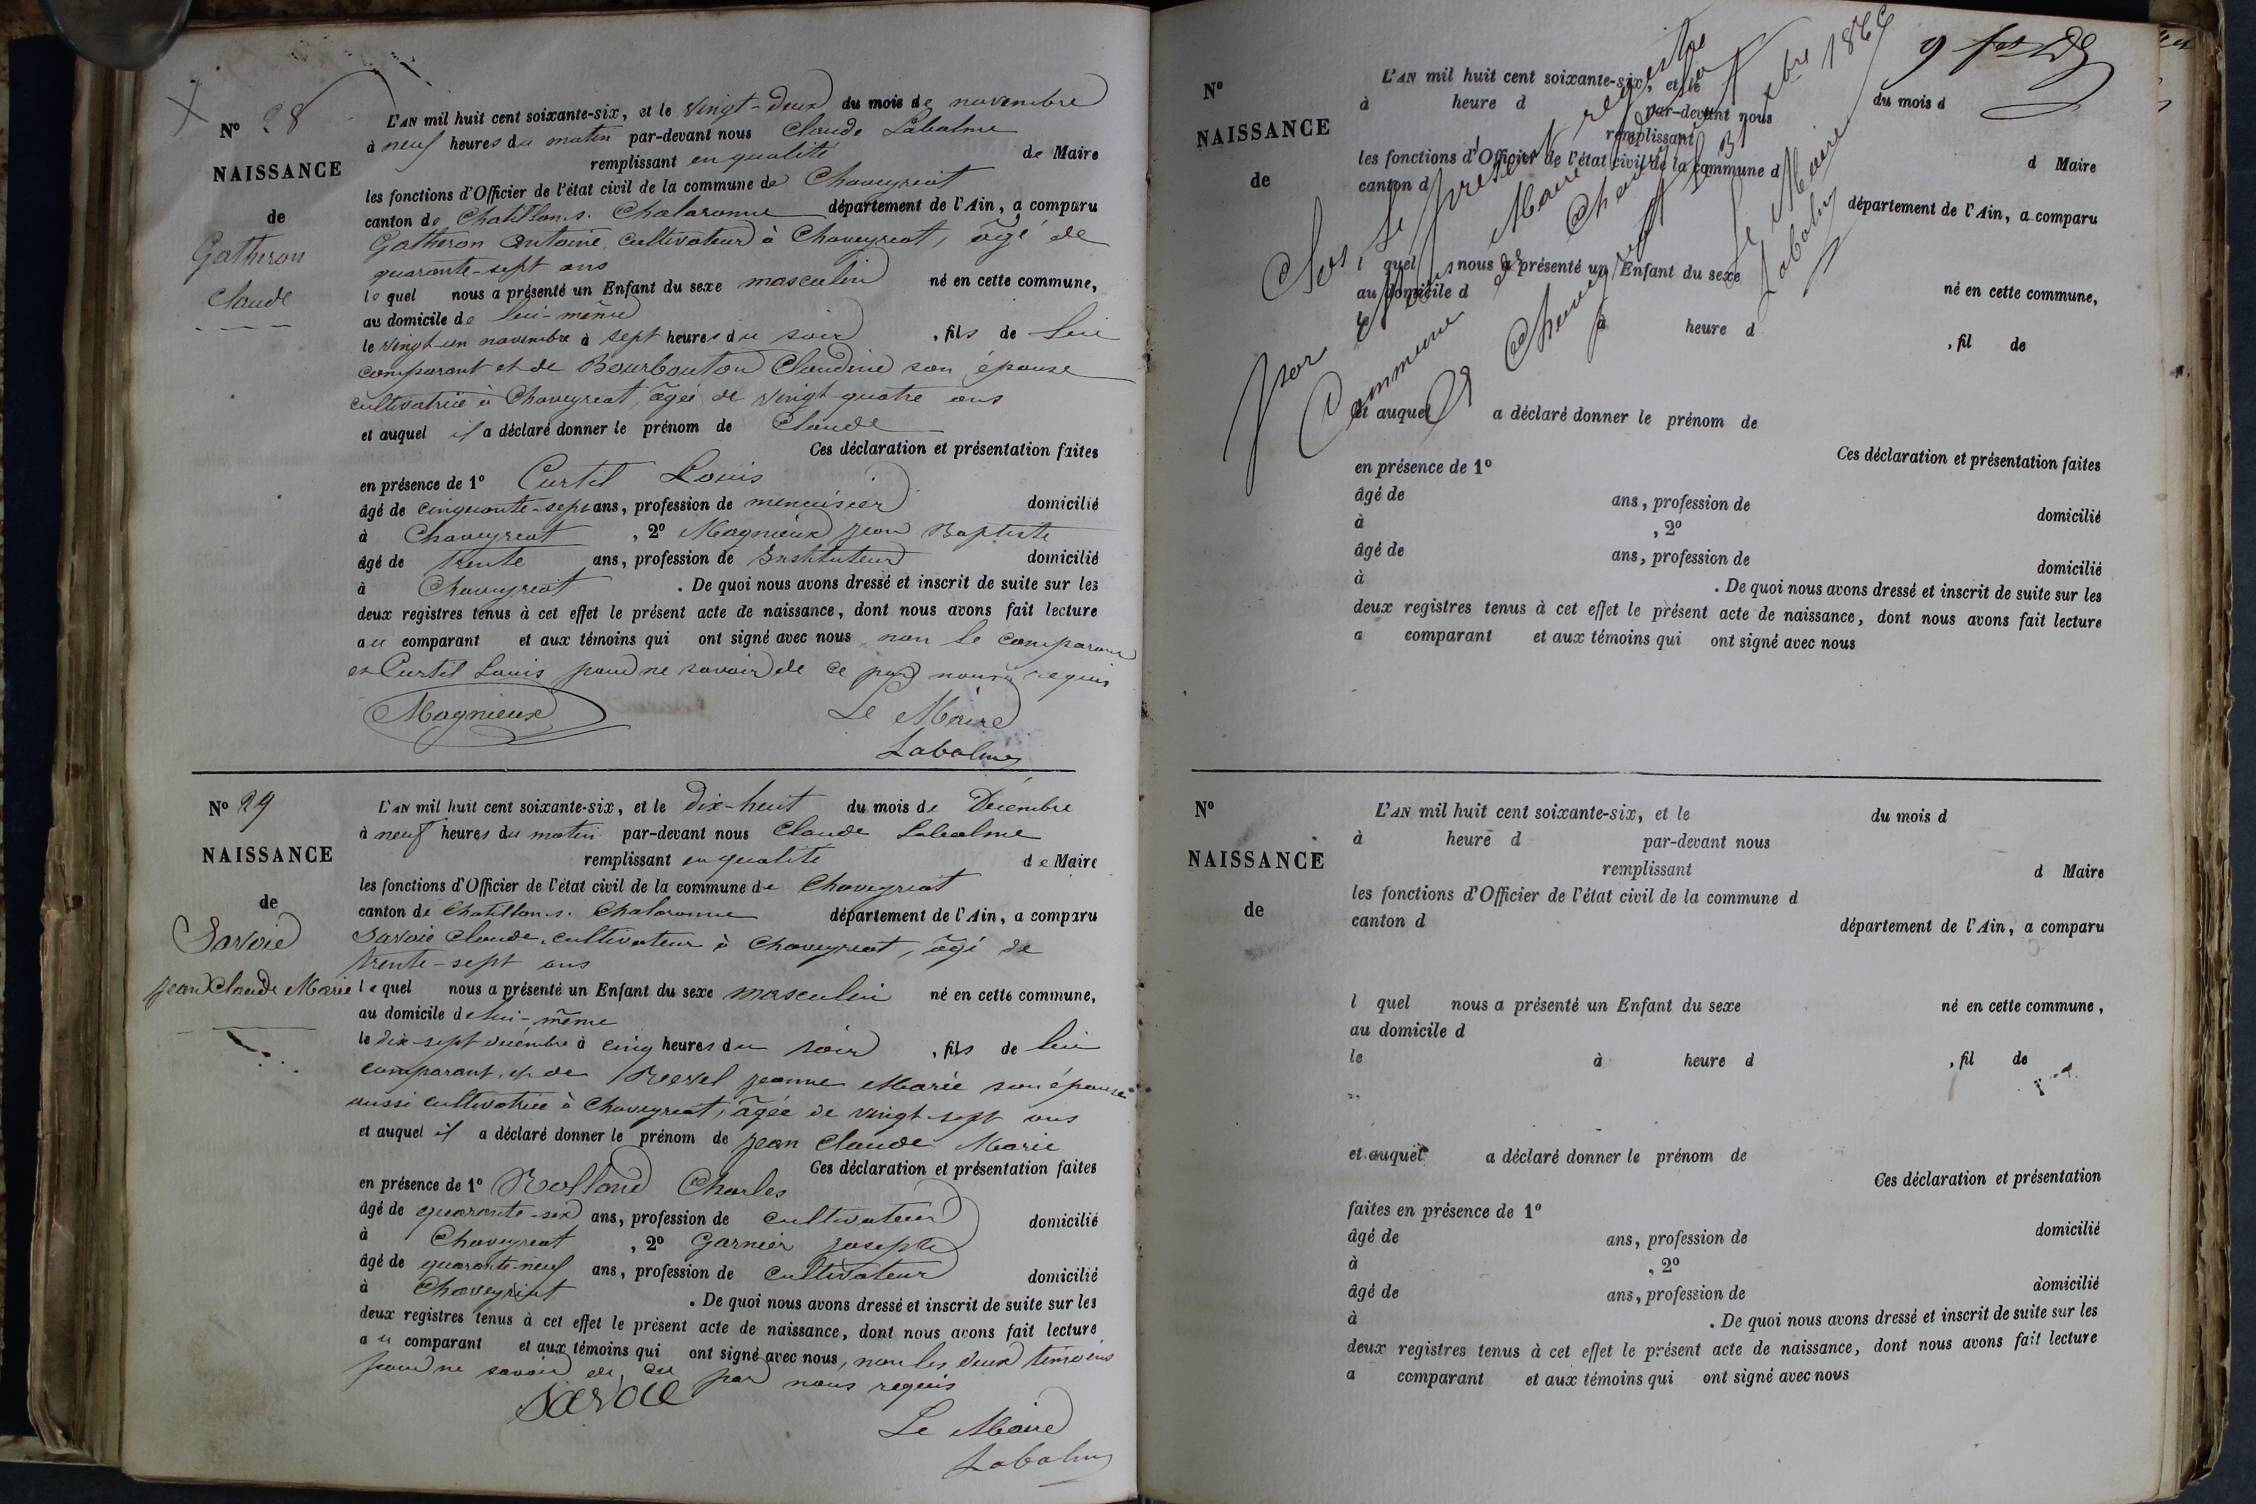 N° 28
NAISSANCE
de
Gatheron
Claude
L'AN mil huit cent soixante-six, et le vingt-deux du mois de novembre
à neuf heures du matin par-devant nous Claude Labalme
remplissant en qualité de Maire
les fonctions d'Officier de l'état civil de la commune de Chaveyriat
canton de Chatillon-s-Chalaronne département de l'Ain, a comparu
Gatheron Antoine, cultivateur à Chaveyriat, âgé de
quarante-sept ans
lequel nous a présenté un Enfant du sexe masculin né en cette commune,
au domicile de lui-même
le vingt-un novembre à sept heures du soir, fils de lui
comparant et de Bourbouton Claudine son épouse
cultivatrice à Chaveyriat, âgée de vingt-quatre ans
et auquel il a déclaré donner le prénom de Claude
Ces déclaration et présentation faites
en présence de 1° Curtil Louis
âgé de cinquante-sept ans, profession de menuisier domicilié
à Chaveyriat, 2° Magnieux Jean Baptiste
âgé de trente ans, profession de Instituteur domicilié
à Chaveyriat. De quoi nous avons dressé et inscrit de suite sur les
deux registres tenus à cet effet le présent acte de naissance, dont nous avons fait lecture
au comparant et aux témoins qui ont signé avec nous non le comparant
et Curtil Louis pour ne savoir de ce par nous requis
Magnieux Le Maire
Labalme
N° 29
NAISSANCE
de
Savoie
Jean Claude Marie
L'AN mil huit cent soixante-six, et le dix-huit du mois de Décembre
à neuf heures du matin par-devant nous Claude Labalme
remplissant en qualité de Maire
les fonctions d'Officier de l'état civil de la commune de Chaveyriat
canton de Chatillon-s-Chalaronne département de l'Ain, a comparu
Savoie Claude, cultivateur à Chaveyriat, âgé de
trente-sept ans
lequel nous a présenté un Enfant du sexe masculin né en cette commune,
au domicile de lui-même
le dix-sept décembre à cinq heures du soir, fils de lui
comparant, et de Jeanne Marie son épouse
aussi cultivatrice à Chaveyriat, âgée de vingt-sept ans
et auquel il a déclaré donner le prénom de Jean Claude Marie
Ces déclaration et présentation faites
en présence de 1° Rolland Charles
âgé de quarante-six ans, profession de cultivateur domicilié
à Chaveyriat, 2° Garnier Joseph
âgé de quarante-neuf ans, profession de cultivateur domicilié
à Chaveyriat. De quoi nous avons dressé et inscrit de suite sur les
deux registres tenus à cet effet le présent acte de naissance, dont nous avons fait lecture
au comparant et aux témoins qui ont signé avec nous, non les deux témoins
pour ne savoir de ce par nous requis
savoie
Le Maire
Labalme
9
N°
NAISSANCE
de
L'AN mil huit cent soixante-six, et le du mois d
à heure d par-devant nous
remplissant d Maire
les fonctions d'Officier de l'état civil de la commune d
canton d département de l'Ain, a comparu
l quel nous a présenté un Enfant du sexe né en cette commune,
au domicile d
à heure d , fil de
et auquel a déclaré donner le prénom de
Ces déclaration et présentation faites
en présence de 1°
âgé de ans, profession de domicilié
à , 2°
âgé de ans, profession de domicilié
à . De quoi nous avons dressé et inscrit de suite sur les
deux registres tenus à cet effet le présent acte de naissance, dont nous avons fait lecture
a comparant et aux témoins qui ont signé avec nous
Clos le présent registre
par nous Maire de la
Commune de Chaveyriat
Chaveyriat 31 1866
Le Maire
Labalme
N°
NAISSANCE
de
L'AN mil huit cent soixante-six, et le du mois d
à heure d par-devant nous
remplissant d Maire
les fonctions d'Officier de l'état civil de la commune d
canton d département de l'Ain, a comparu
l quel nous a présenté un Enfant du sexe né en cette commune,
au domicile d
le à heure d , fil de
et auquel a déclaré donner le prénom de
Ces déclaration et présentation
faites en présence de 1°
âgé de ans, profession de domicilié
à , 2°
âgé de ans, profession de domicilié
à . De quoi nous avons dressé et inscrit de suite sur les
deux registres tenus à cet effet le présent acte de naissance, dont nous avons fait lecture
a comparant et aux témoins qui ont signé avec nous